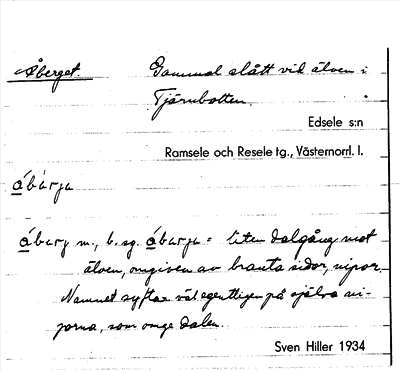 Åberget. Gammal slått vid älven i
Tjärnbotten.
Edsele s:n
Ramsele och Resele tg., Västernorrl. l.
ǻbàrja
ǻbarj m., b. sg. ǻbarja = liten dalgång mot
älven, omgiven av branta sidor, nipor.
Namnet syftar väl egentligen på själva ni-
porna, som omge dalen.
Sven Hiller 1934